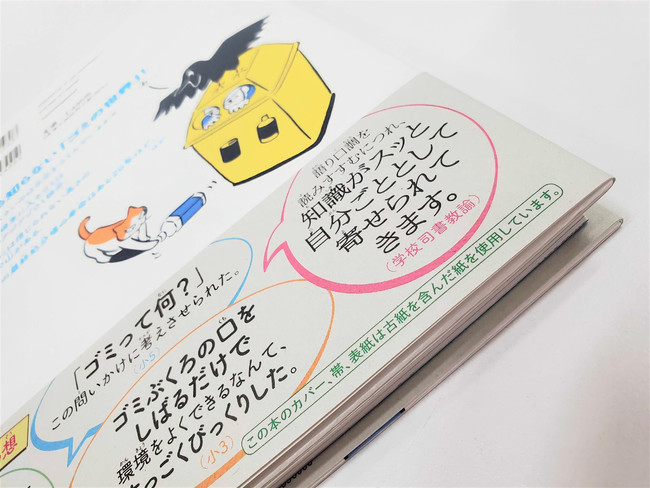 語り口調を
読みすすむにつれ、
知識がスッと
自分ごととして
寄せられて
きます。
(学校司書教諭)
「ゴミって何?」
この問いかけに考えさせられた。
(小5)
ゴミぶくろの口を
しばるだけで
環境をよくできるなんて、
すっごくびっくりした。
(小3)
この本のカバー、帯、表紙は古紙を含んだ紙を使用しています。
想